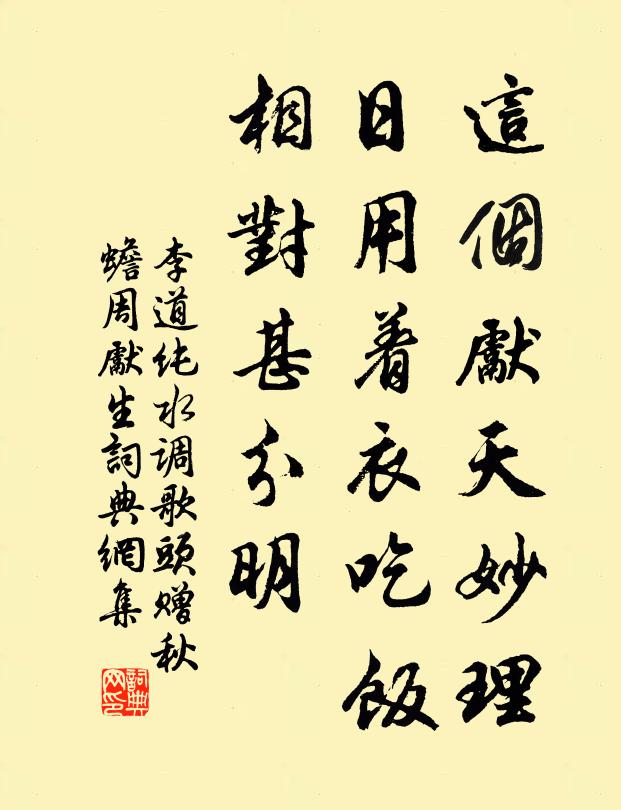 這個獻天妙理
日用着衣吃飯
相對甚分明
李道纯水调歌頭赠秋
蟾周獻生詞典網集
詞典
网印